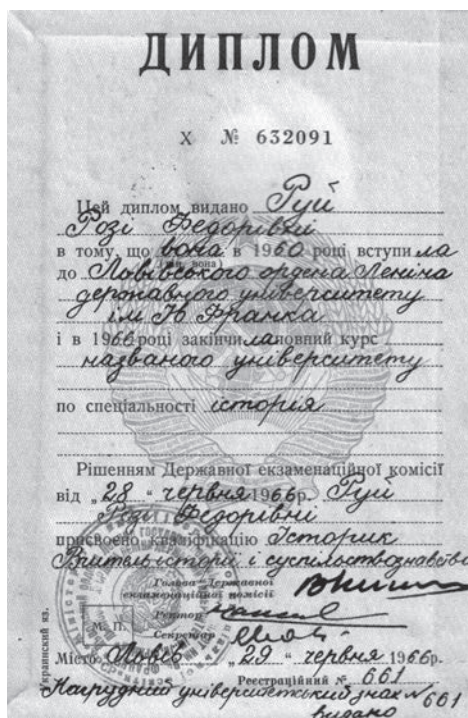 ДИПЛОМ
X № 632091
Цей диплом видано Гуй
Розі Федорівні
в тому, що вона в 1960 році вступила
(він, вона)
до Львівського ордена Леніна
державного університету
ім Ів. Франка
і в 1966 році закінчила повний курс
названого університету
по спеціальності історія
Рішенням Державної екзаменаційної комісії
від „28“ червня 1966р. Гуй
Розі Федорівні
присвоєно кваліфікацію Історик
Вчитель історії і суспільствознавства
Голова Державної
екзаменаційної комісії
Ректор
М. П.
Секретар
Місто Львів „29“ червня 1966р.
Реєстраційний № 661
Украинский яз.
Нагрудний університетський знак № 661
видано